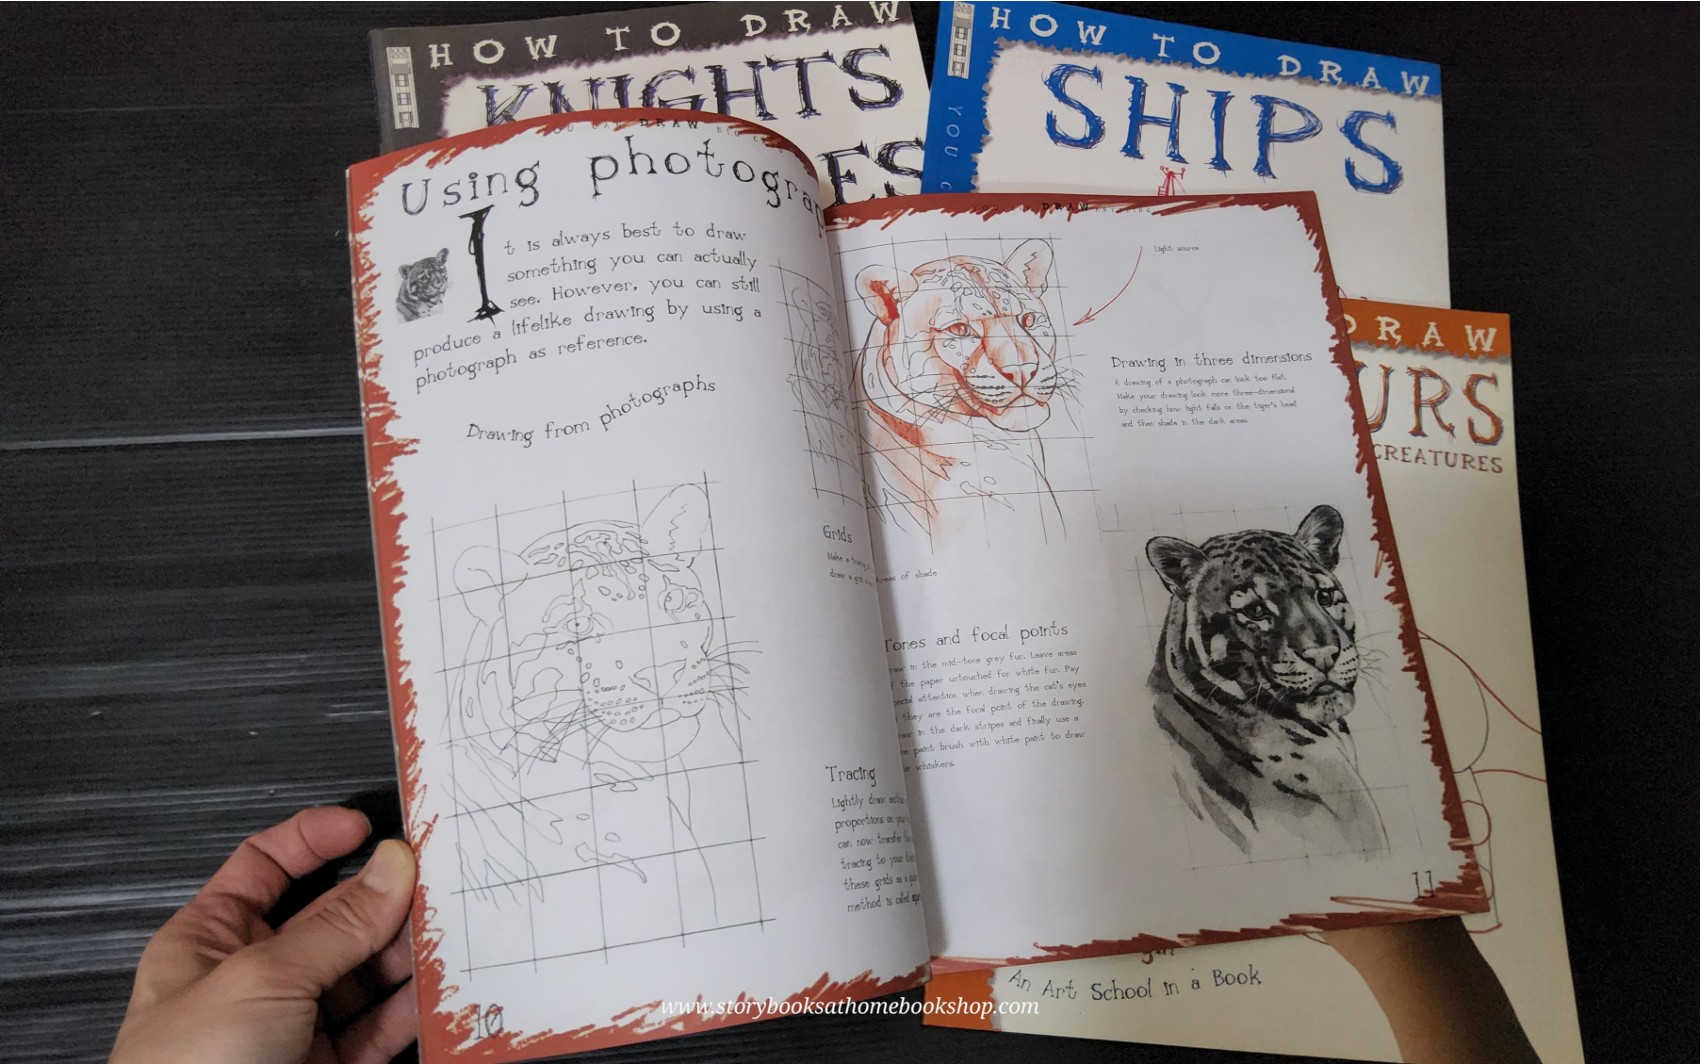 HOW TO DRAW
KNIGHTS
ES
HOW TO DRAW
SHIPS
YOU
DRAW
URS
CREATURES
An Art School in a Book
DRAW
Using photograp
It is always best to draw
something you can actually
see. However, you can still
produce a lifelike drawing by using a
photograph as reference.
Drawing from photographs
Grids
Make a tracing
draw a grid
Tracing
Lightly draw
proportions on your
can now transfer
tracing to your
these grids as a
method is called
10
DRAW
Light source
Drawing in three dimensions
A drawing of a photograph can look too flat.
Make your drawing look more three-dimensional
by checking how light falls on the tiger's head
and then shade in the dark areas.
Areas of shade
Tones and focal points
raw in the mid-tone grey fur. Leave areas
f the paper untouched for white fur. Pay
pecial attention when drawing the cat's eyes
they are the focal point of the drawing.
in the dark stripes and finally use a
ne paint brush with white paint to draw
e whiskers.
11
www.storybooksathomebookshop.com